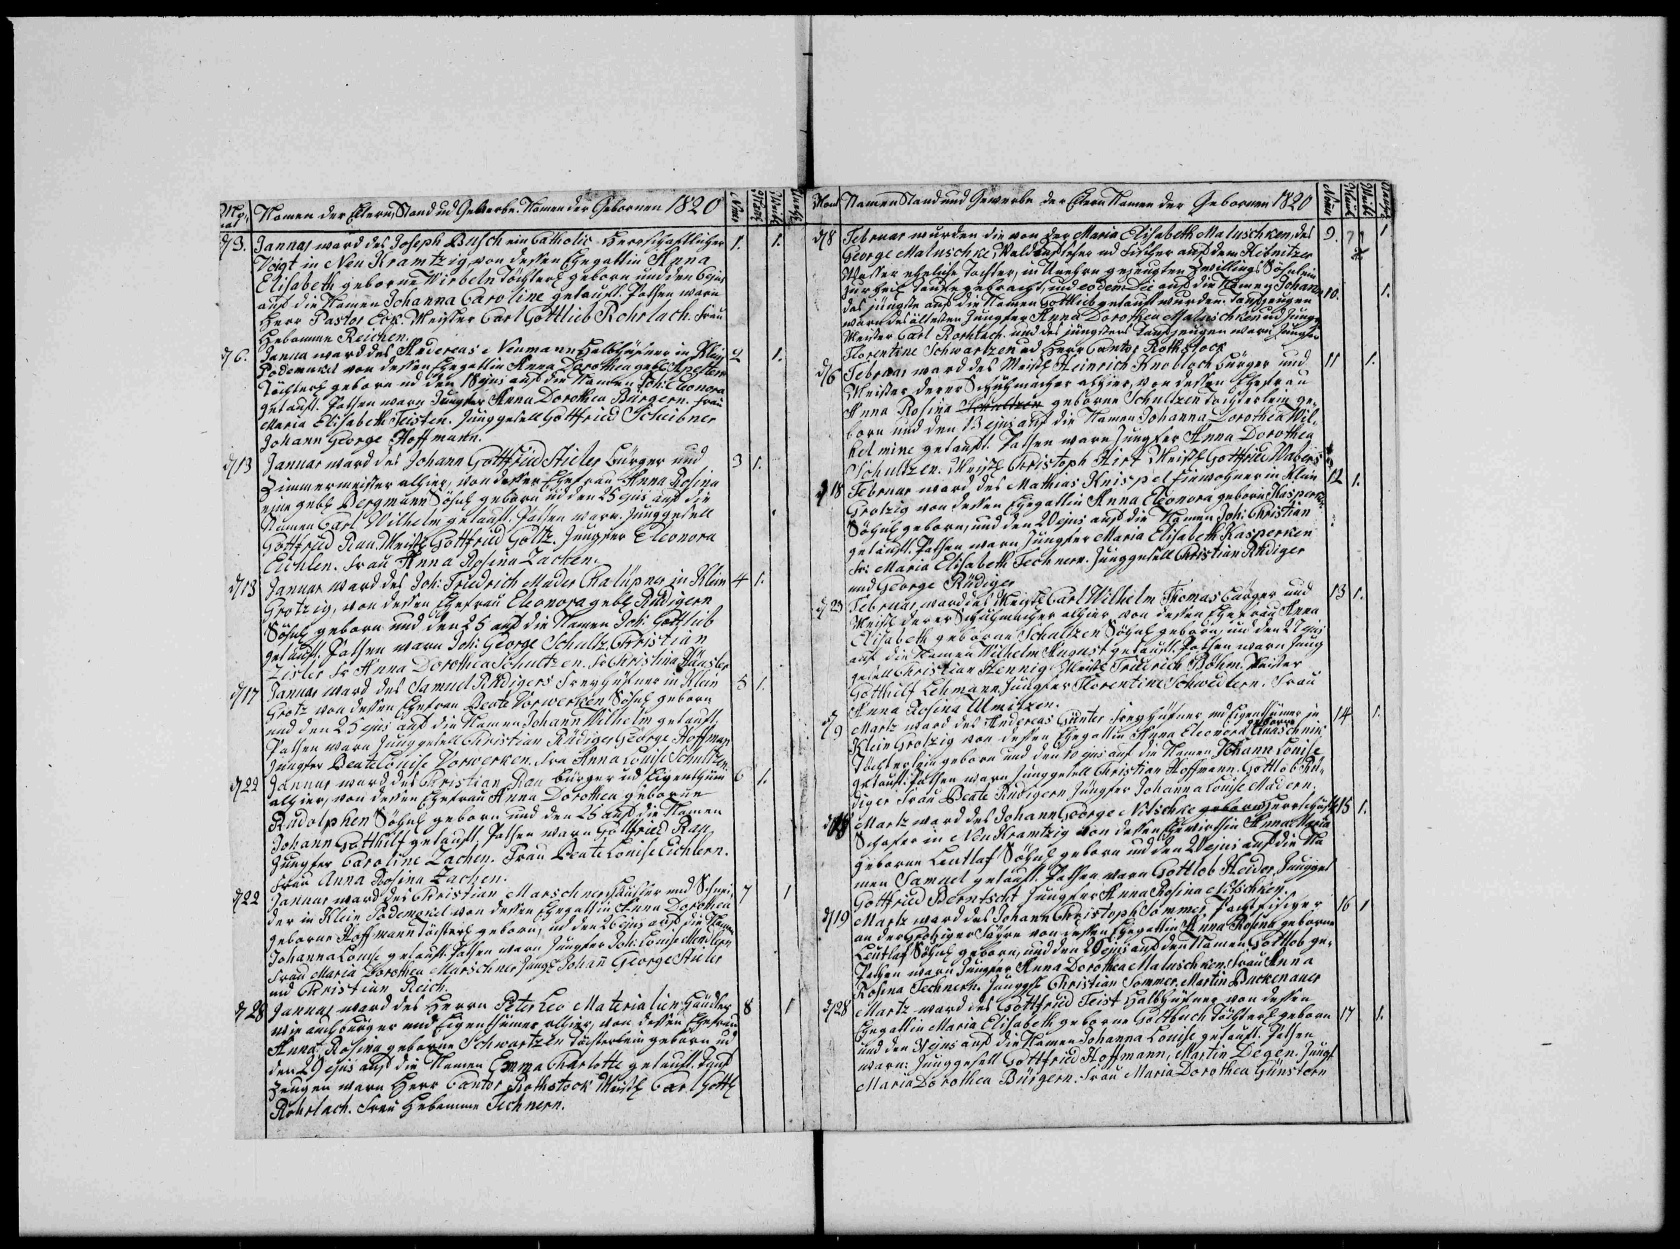 Namen der Eltern, Stand und Gewerbe. Namen der Gebornen 1820
d/3. Januar ward des Joseph Busch ein Catholic Herrschaftlicher 1. 1.
Voigt in Neu Kramtzig von dessen Ehegattin Anna
Elisabeth geborne Wirbeln Töchterl geborn und den 6 ejus
auf die Namen Johanna Caroline getauft. Pathen warn
Herr Pastor Meister Carl Gottlieb Rohrlach. Frau
Hebamme Reichen.
d/6. Januar ward des Andereas Neumann Halbhüfner in Klein 2 1.
Podemukel von dessen Ehegattin Anna Dorothea geb.
Töchterl geborn und den 18 ejus auf die Namen Joh: Eleonora
getauft. Pathen warn Jungfer Anna Dorothea Bürgern. Frau
Maria Elisabeth Teisten. Junggesell Gottfried Scheibner
Johann George Hoffmann.
d/13 Januar ward des Johann Gottfried Stieler Bürger und 3 1.
Zimmermeister alhier, von dessen Ehefrau Anna Rosina
eine gebl Bergmann Söhnl geborn und den 25 ejus auf die
Namen Carl Wilhelm getauft. Pathen warn. Junggesell
Gottfried Rau. Meistr Gottfried Goltz. Jungfer Eleonora
Eichlen. Frau Anna Rosina Zachen.
d/13 Januar ward des Joh: Friedrich Mader Chalupner in Klein 4 1.
Grotzig, von dessen Ehefrau Eleonora gebl Rüdigern
Söhnl geborn und den 25 auf die Namen Joh: Gottlieb
getauft. Pathen warn Joh: George Schultz, Christian
Zister Fr Anna Dorothea Schultzen. Fr Christina
d/17 Januar ward des Samuel Rüdigers Freyhüfner in Klein 5 1.
Grotz von dessen Ehefrau Beate Vorwerken Söhnl geborn
und den 25 ejus auf die Namen Johann Wilhelm getauft,
Pathen warn Junggesell Christian Rüdiger George Hoffman
Jungfer Beate Louise Vorwerken. Fra Anna Louise Schultzen.
d/22 Januar ward des Christian Rau Bürger und Eigenthüm 6 1.
alhier, von dessen Ehefrau Anna Dorothea geborne
Rudolphen Söhnl geborn und den 25 auf die Namen
Johann Gotthilf getauft, Pathen warn Gottfried Rau,
Jungfer Caroline Zachen. Frau Beate Louise Eichlern.
Frau Anna Rosina Zachen.
d/22 Januar ward des Christian Marschner Häusler und Schnei 7 1
der in Klein Podemukel von dessen Ehegattin Anna Dorothea
geborne Hoffmann Töchterl geborn, und den 26 ejus auf die Namen
Johanna Louise getauft. Pathen warn Jungfer Joh: Louise
Frau Maria Dorothea Marschner Jungs Johann George Stieler
und Christian Reich.
d/28 Januar ward des Herrn Peter Leo Materialien Händler 8 1
wie auch Bürger und Eigenthümer alhier, von dessen Ehefrau
Anna Rosina geborne Schwartzen Töchterlein geborn und
den 29 ejus auf die Namen Emma Charlotte getauft. Tauf
Zeugen warn Herr Cantor Rothstock Meistr Carl Gottl
Rohrlach. Frau Hebamme Technern.
Mon Namen Stand und Gewerbe der Eltern Namen der Gebornen 1820
d/8 Februar wurden die von der Maria Elisabeth Maluschken, des 9. 1
George Maluschke, und Fischer auf dem Kebnitzer
Wasser eheliche Tochter, in Unehren gezeugten Zwillings Söhnlein
zur heil Taufe gebracht, und eodem die auf die Namen Johann 10. 1.
das jüngste auf die Namen Gottlieb getauft wurden. Taufzeugen
warn des ältesten Jungfer Anna Dorothea Maluschken und Jungs
Meister Carl Rohrlach. und des jüngsten Taufzeugen warn Jungfer
Florentine Schwartzen und Herr Cantor Rothstock
d/6 Februar ward des Meistr Heinrich Knobloch Bürger und 11 1.
Meister derer Schuhmacher alhier, von dessen Ehefrau
Anna Rosina Schultzen geborne Schultzen Töchterlein ge-
born und den 13 ejus auf die Namen Johanna Dorothea Wil-
helmine getauft. Pathen warn Jungfer Anna Dorothea
Schultzen. Meistr Christoph Hirt Meistr Gottfried Wabers
d/18 Februar ward des Mathias Knispel Einwohner in Klein 12 1.
Grotzig von dessen Ehegattin Anna Eleonora geborn Kasperken
Söhnl geborn, und den 20 ejus auf die Namen Joh: Christian
getauft. Pathen warn Jungfer Maria Elisabeth Kasperken
Fr: Maria Elisabeth Technern. Junggesell Christian Rüdiger
und George Rüdiger
d/23 Februar ward des Meistr Carl Wilhelm Thomas Bürger und 13 1.
Meistr derer Schuhmacher alhier von dessen Ehefrau Anna
Elisabeth geborne Schultzen Söhnl geborn, und den 27 ejus
auf die Namen Wilhelm August getauft. Pathen warn Jung
gesell Christian Hennig. Meistr Friederich Böhm. Meister
Gotthilf Lehmann Jungfer Florentine Schwedlern. Frau
Anna Rosina Ulmitzen.
d/9 Martz ward des Andereas Günter Freyhüfner und Eigenthümer in 14 1.
Klein Grotzig von dessen Ehegattin Anna Eleonora geborne
Töchterlein geborn und den 10 ejus auf die Namen Johann Louise
getauft. Pathen warn Junggesell Christian Hoffmann. Gottlob Rü-
diger Frau Beate Rüdigern Jungfer Johanna Louise Madern.
Martz ward des Johann George Nitschke geborn Herrschaftl 15 1.
Schafer in Neu Kramtzig von dessen Ehewirthin Anna Maria
geborne Leutlof Söhnl geborn und den 20 ejus auf die Na
men Samuel getauft. Pathen warn Gottlob Heider, Junggel
Gottfried Berntscht Jungfer Anna Rosina Nitschken.
d/19 Martz ward des Johann Christoph Sommer, 16 1
an der Grotziger von dessen Ehegattin Anna Rosina geborne
Leutlof Söhnl geborn, und den 26 ejus auf den Namen Gottlob ge-
Pathen warn Jungfer Anna Dorothea Maluschken, Frau Anna
Rosina Technern. Junggs. Christian Sommer, Martin Buckenauer
d/28 Martz ward des Gottfried Teist Halbhüfner von dessen
Ehegattin Maria Elisabeth geborne Gottbuch Töchterl geborn 17 1.
und den 31 ejus auf die Namen Johanna Louise getauft. Pathen
warn: Junggesell Gottfried Hoffmann, Martin Degen. Jungf
Maria Dorothea Bürgern. Frau Maria Dorothea Günstern